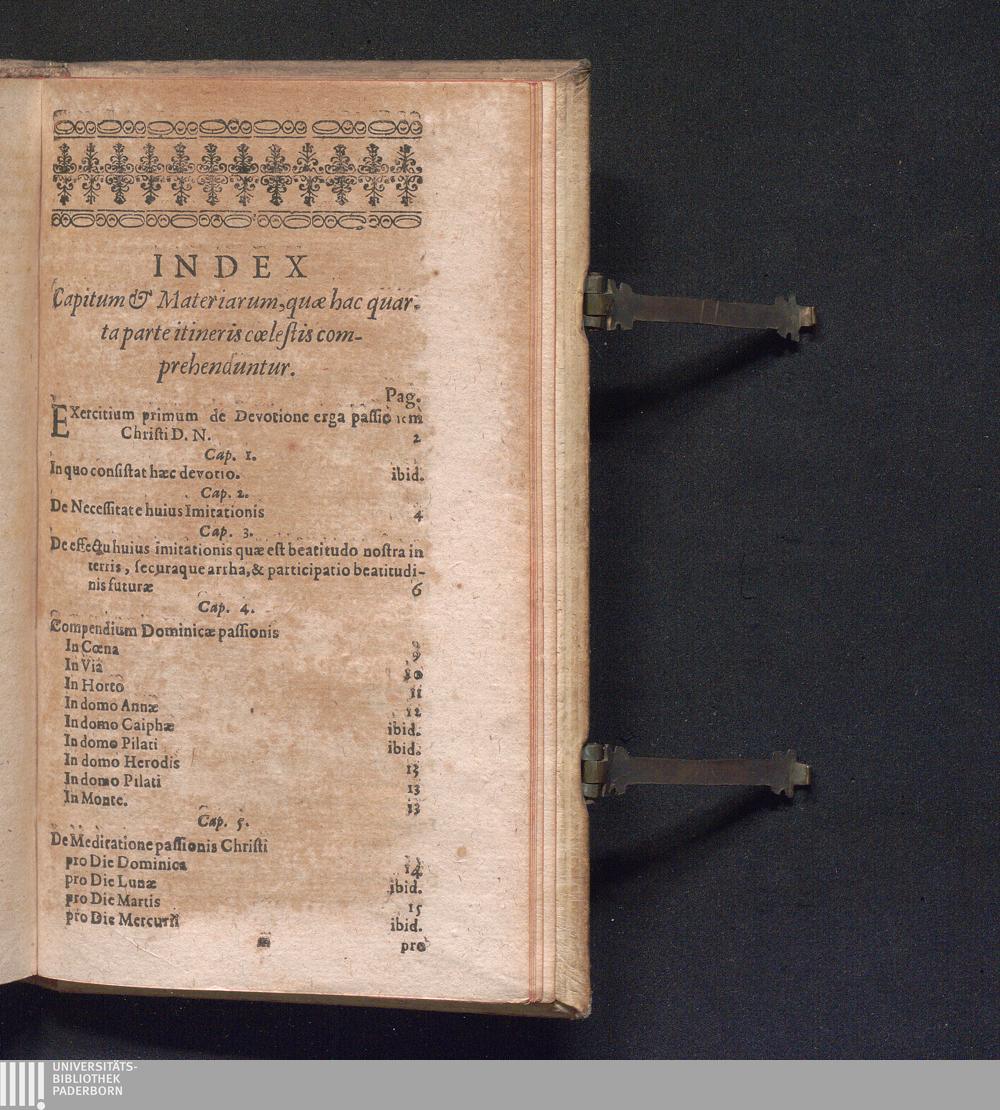 INDEX
Capitum & Materiarum, quæ hac quar-
ta parte itineris cœlestis com-
prehenduntur.
Pag.
EXercitium primum de Devotione erga passionem
Christi D. N. 2
Cap. 1.
In quo consistat hæc devotio. ibid.
Cap. 2.
De Necessitate huius Imitationis 4
Cap. 3.
De effectu huius imitationis quæ est beatitudo nostra in
terris, securaque arrha, & participatio beatitudi-
nis futuræ 6
Cap. 4.
Compendium Dominicæ passionis
In Cœna 9
In Via 10
In Horto 11
In domo Annæ 12
In domo Caiphæ ibid.
In domo Pilati ibid.
In domo Herodis 13
In domo Pilati 13
In Monte. 13
Cap. 5.
De Meditatione passionis Christi
pro Die Dominica 14
pro Die Lunæ ibid.
pro Die Martis 15
pro Die Mercurii ibid.
m pro
UNIVERSITÄTS-
BIBLIOTHEK
PADERBORN